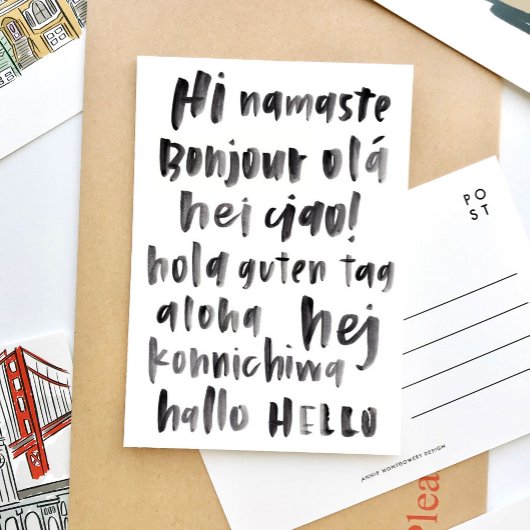 Hi namaste
Bonjour olá
hei ciao!
hola guten tag
aloha hej
konnichiwa
hallo HELLO
POST
ANNIE MONTGOMERY DESIGN
Plea